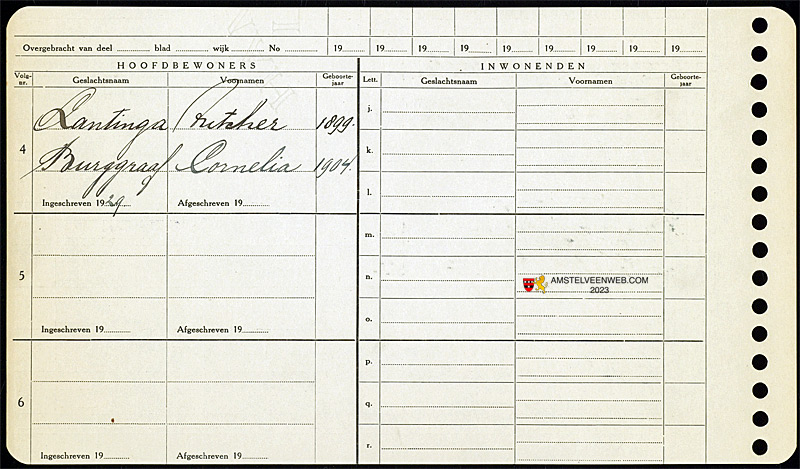 Overgebracht van deel ........ blad ........ wijk ........ No ........ 19.... 19.... 19.... 19.... 19.... 19.... 19.... 19.... 19....
HOOFDBEWONERS INWONENDEN
Volg-nr. Geslachtsnaam Voornamen Geboorte-jaar Lett. Geslachtsnaam Voornamen Geboorte-jaar
4 Lantinga 1899. j.
Burggraaf Cornelia 1904. k.
l.
Ingeschreven 1929 Afgeschreven 19........
m.
5 n. AMSTELVEENWEB.COM
2023
o.
Ingeschreven 19........ Afgeschreven 19........
p.
6 q.
r.
Ingeschreven 19........ Afgeschreven 19........